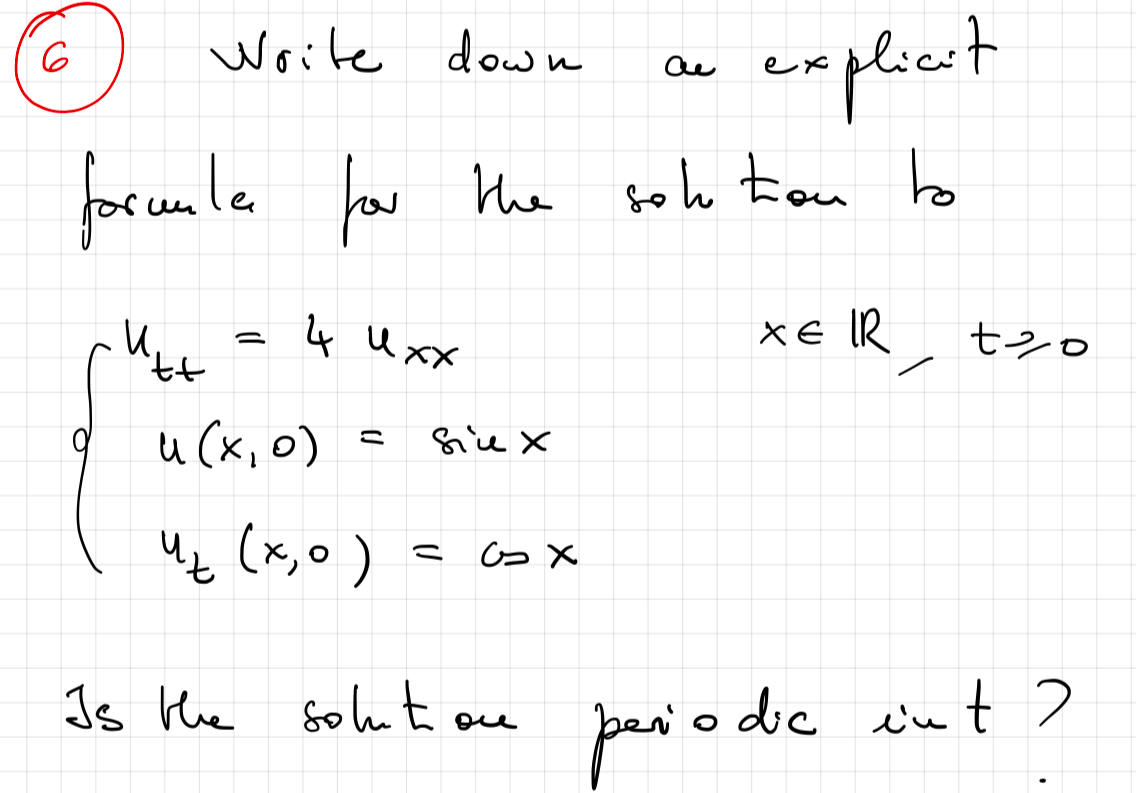 6 Write down an explicit
formula for the solution to
u_tt = 4 u_xx x ∈ ℝ, t ≥ 0
u(x,0) = sin x
u_t (x,0) = cos x
Is the solution periodic in t ?